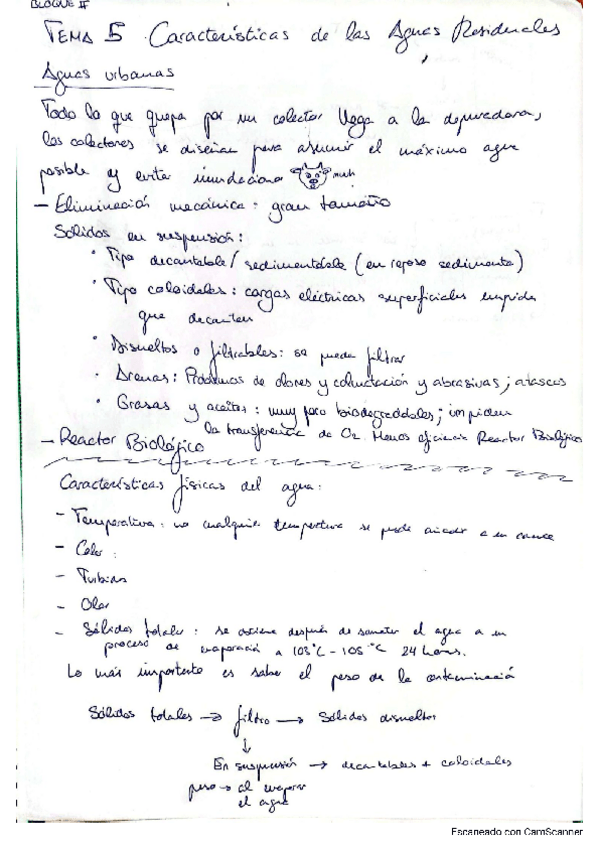 BLOQUE II
TEMA 5 Características de las Aguas Residuales
Aguas urbanas
Todo lo que quepa por un colector llega a la depuradora,
los colectores se diseñan para asumir el máximo agua
posible y evitar inundaciones muh
- Eliminación mecánica: gran tamaño
Sólidos en suspensión:
· Tipo decantable / sedimentable (en reposo sedimenta)
· Tipo coloidales: cargas eléctricas superficiales impiden
que decanten
· Disueltos o filtrables: se puede filtrar
· Arenas: Problemas de olores y colmatación y abrasivas; atascos
· Grasas y aceites: muy poco biodegradables; impiden
la transferencia de O2. Menos eficiencia Reactor Biológico
- Reactor Biológico
Características físicas del agua:
- Temperatura: no cualquier temperatura se puede a un cauce
- Color:
- Turbidez
- Olor
- Sólidos totales: se obtiene después de someter el agua a un
proceso de evaporación a 103°C - 105°C 24 horas.
Lo más importante es saber el peso de la contaminación
Sólidos totales → filtro → Sólidos disueltos
↓
En suspensión → decantables + coloidales
peso → al evaporar
el agua
Escaneado con CamScanner